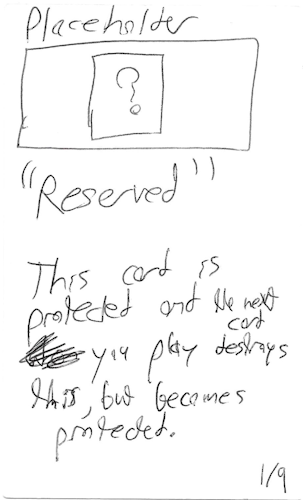 Placeholder
?
"Reserved"
This card is
protected and the next
card
you play destroys
this, but becomes
protected.
1/9